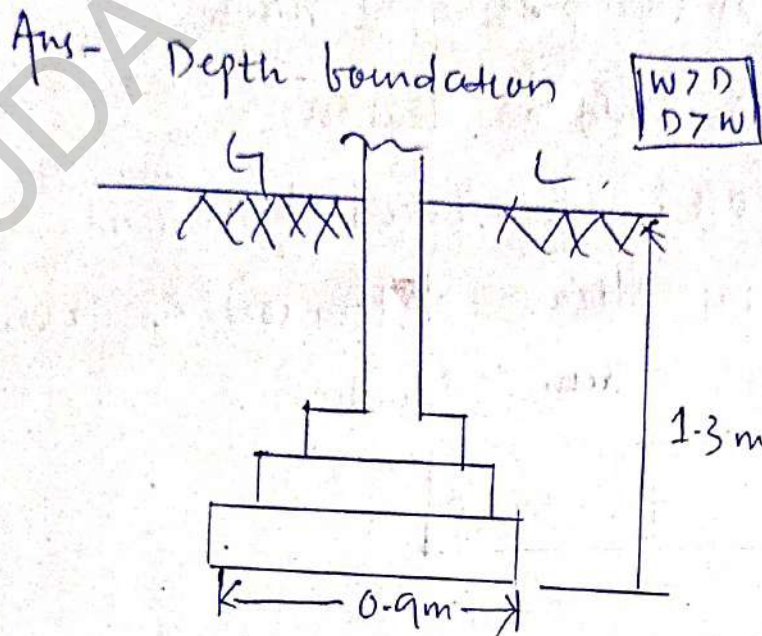 Ans- Depth boundation
W>D
D>W
G L.
1.3 m
0.9m
UDA